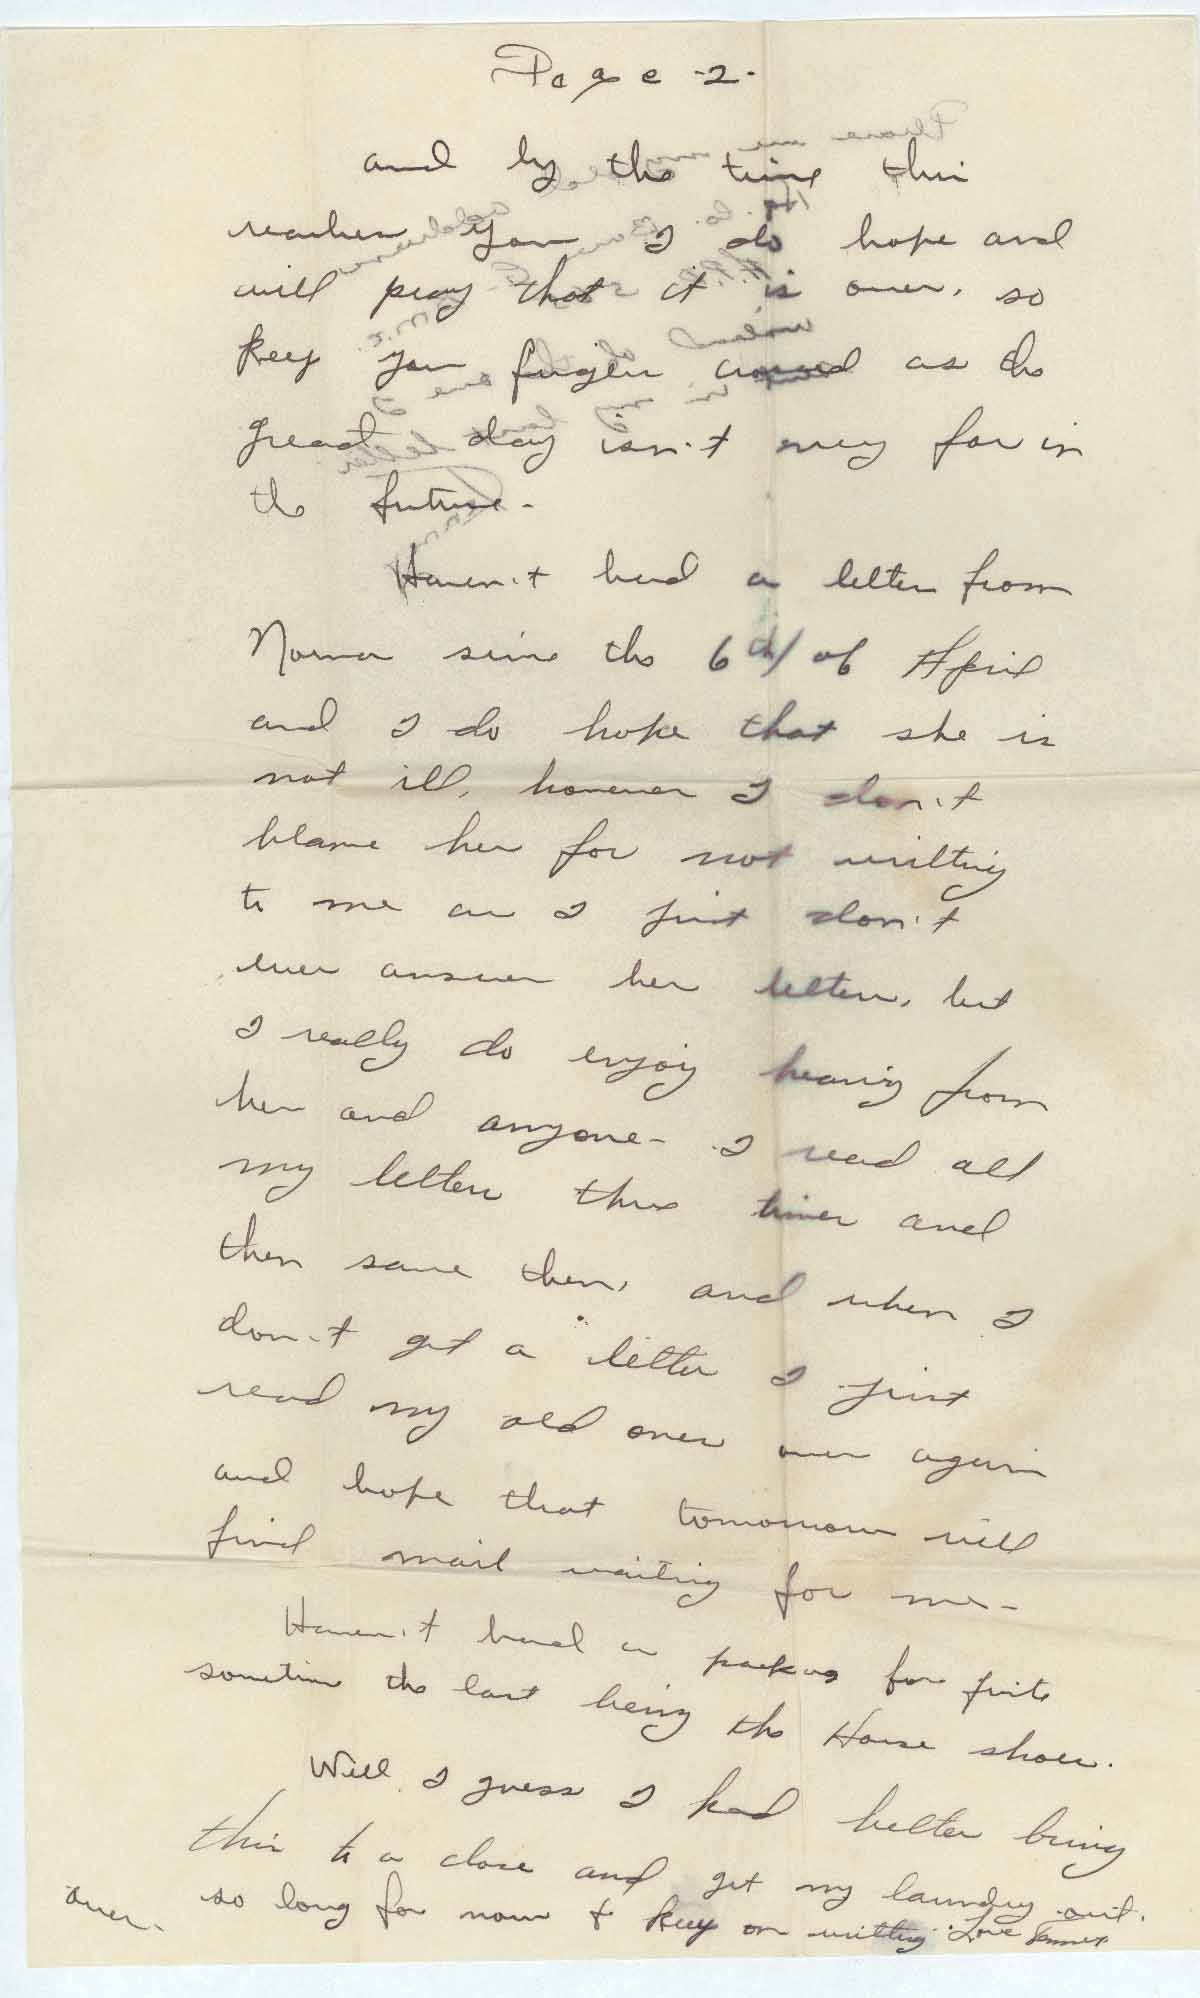 Page -2-
and by the time this
reaches you I do hope and
will pray that it is over, so
keep your fingers crossed as the
great day isn't very far in
the future-
Haven't had a letter from
Norma since the 6th of April
and I do hope that she is
not ill, however I don't
blame her for not writting
to me as I just don't
ever answer her letters, but
I really do enjoy hearing from
her and anyone- I read all
my letters three times and
then save them, and when I
don't get a letter I just
read my old ones over again
and hope that tomorrow will
find mail waiting for me-
Haven't had a package for quite
sometime the last being the Horse shoes.
Well I guess I had better bring
this to a close and get my laundry out.
so long for now & keep on writting Love
over-